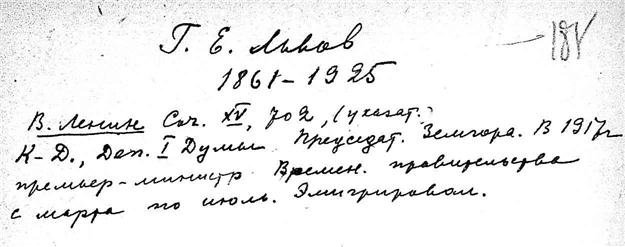 Г. Е. Львов
1861–1925
В. Ленин Соч. XV, 702, (указат.
К-Д., Деп. I Думы Председат. Земгора. В 1917г
премьер-министр Времен. правительства
с марта по июль. Эмигрировал.